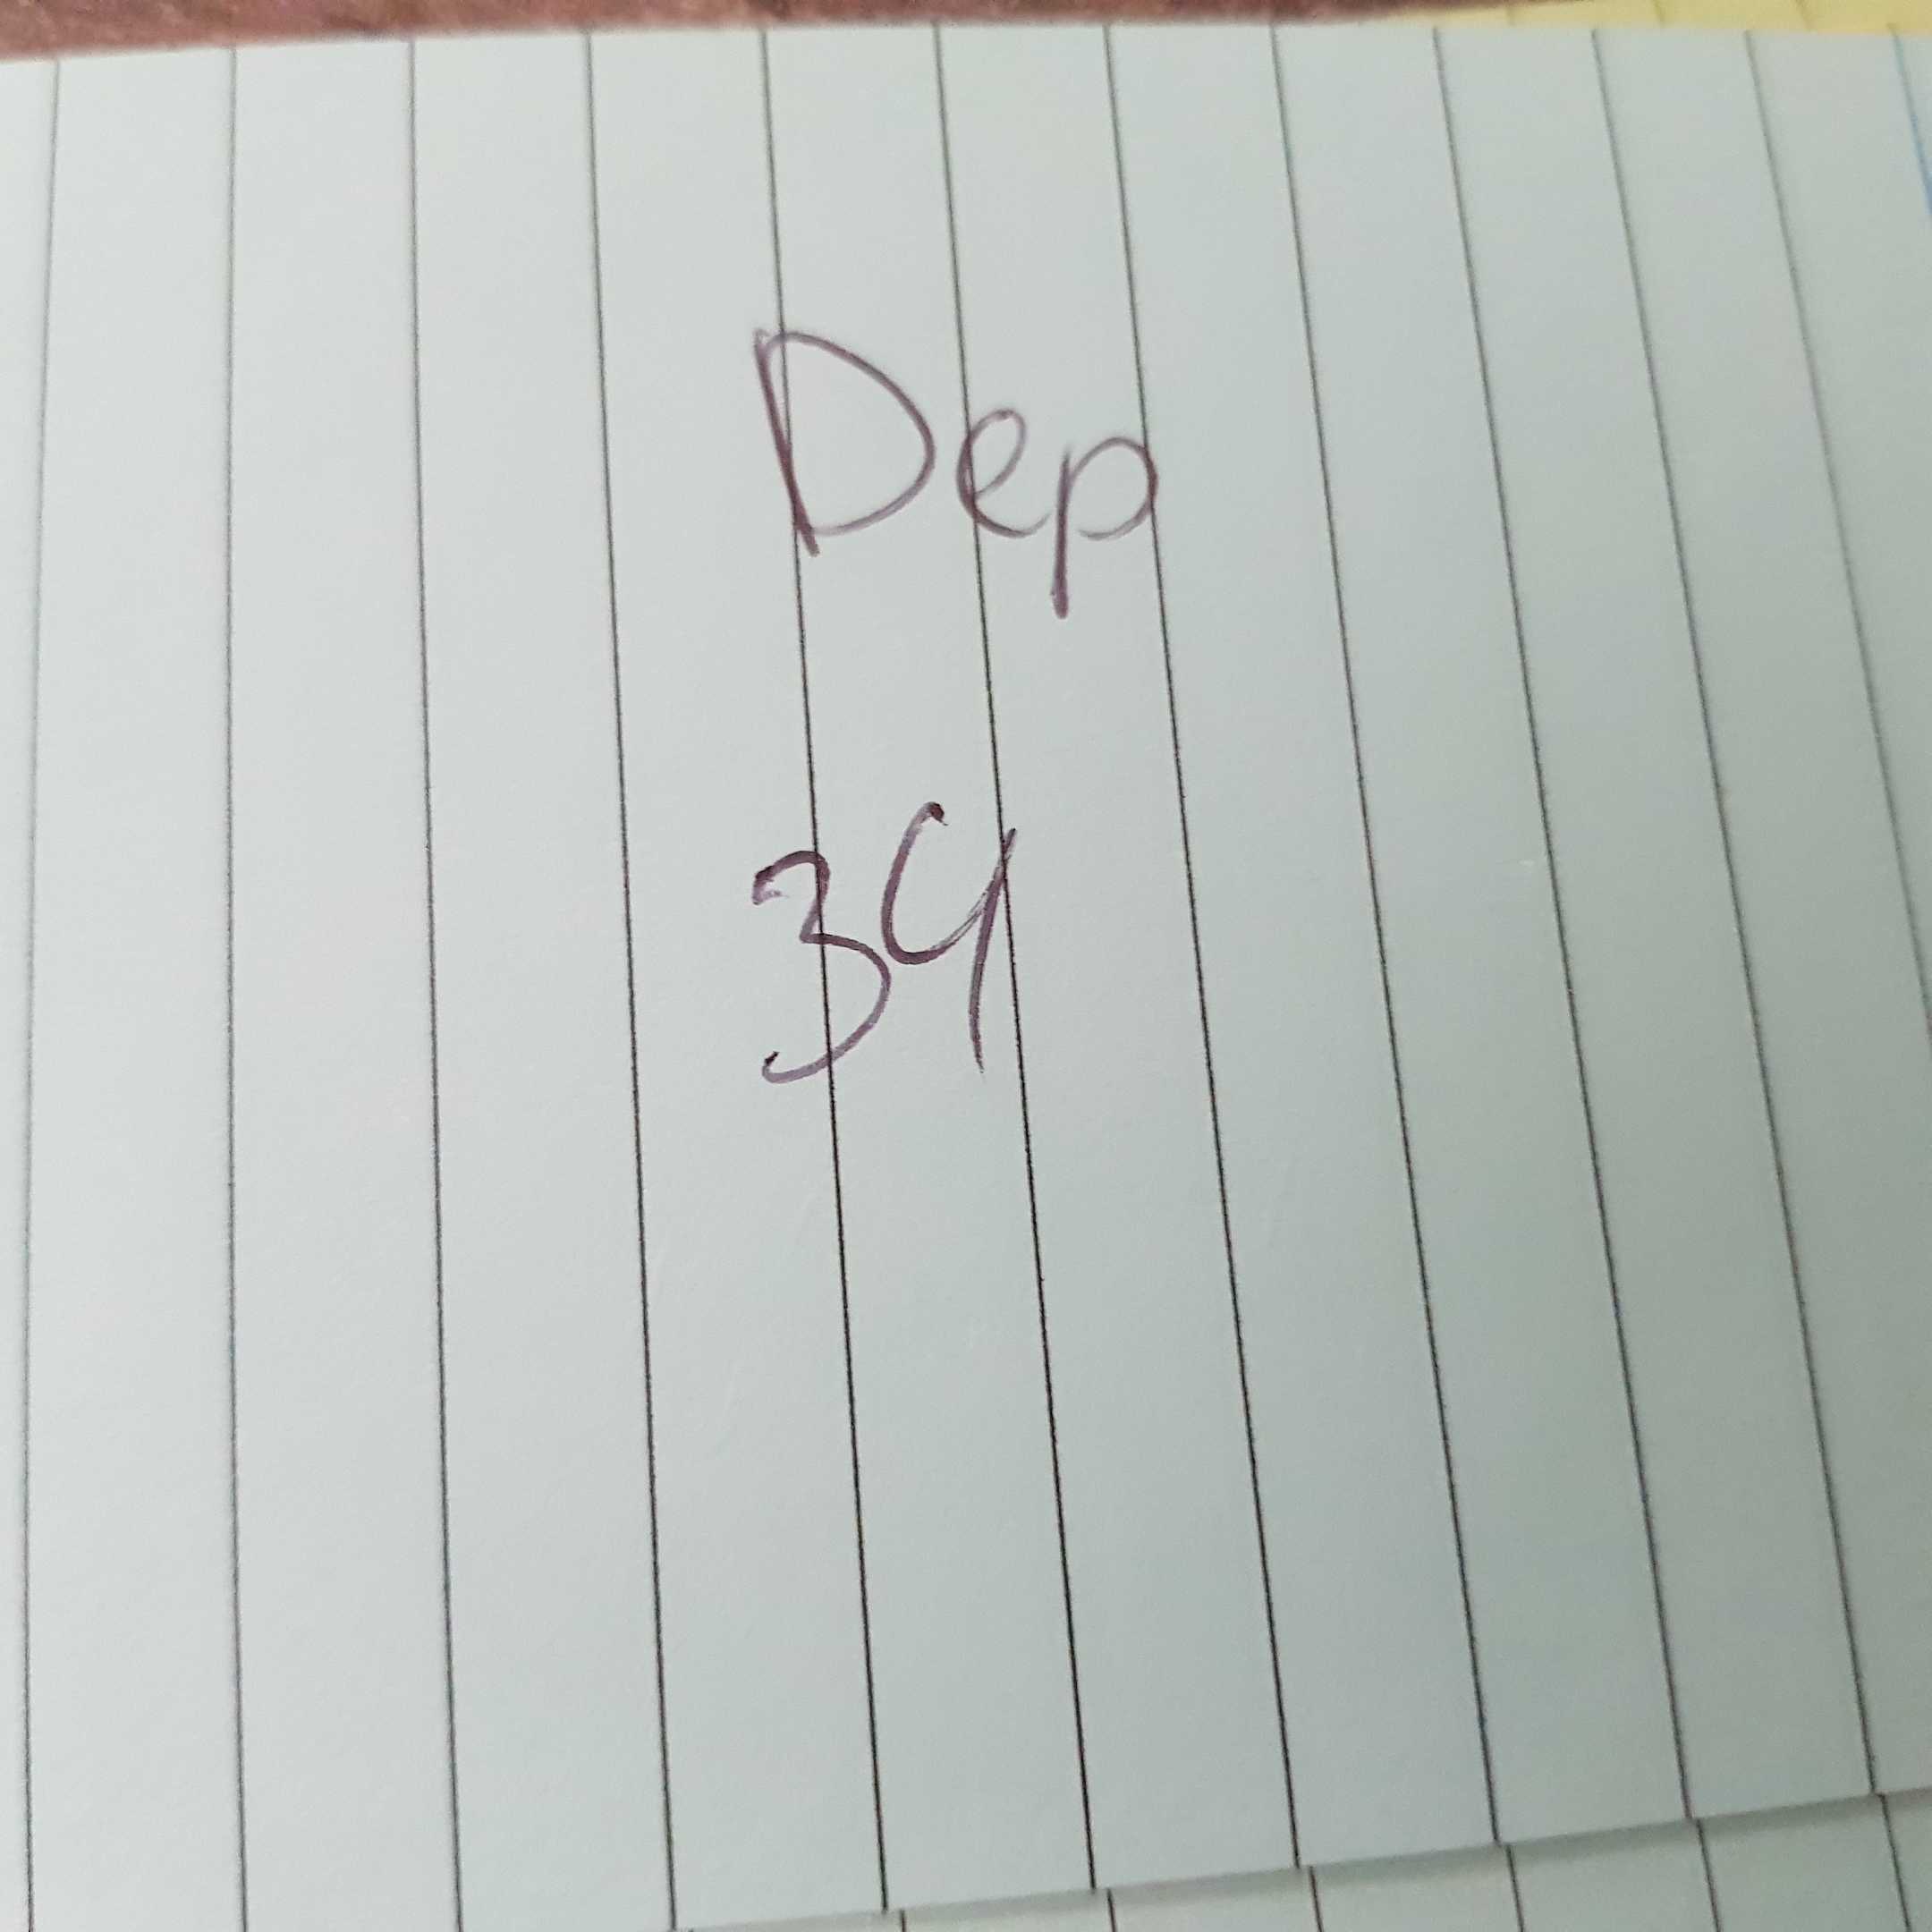 Dep
34